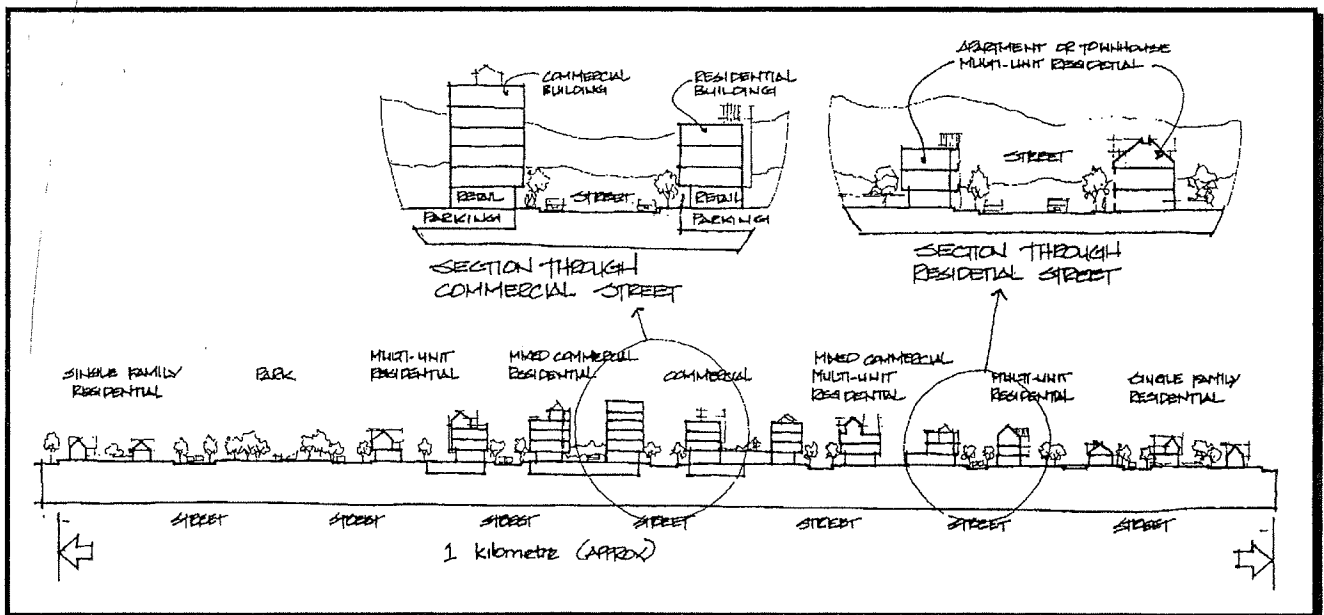 COMMERCIAL
BUILDING
RESIDENTIAL
BUILDING
RETAIL
STREET
RETAIL
PARKING
PARKING
SECTION THROUGH
COMMERCIAL STREET
APARTMENT OR TOWNHOUSE
MULTI-UNIT RESIDETIAL
STREET
SECTION THROUGH
RESIDETIAL STREET
SINGLE FAMILY
RESIDENTIAL
PARK
MULTI-UNIT
RESIDENTIAL
MIXED COMMERCIAL
RESIDENTIAL
COMMERCIAL
MIXED COMMERCIAL
MULTI-UNIT
RESIDENTIAL
MULTI-UNIT
RESIDENTIAL
SINGLE FAMILY
RESIDENTIAL
STREET
STREET
STREET
STREET
STREET
STREET
STREET
1 kilometre (APPROX)